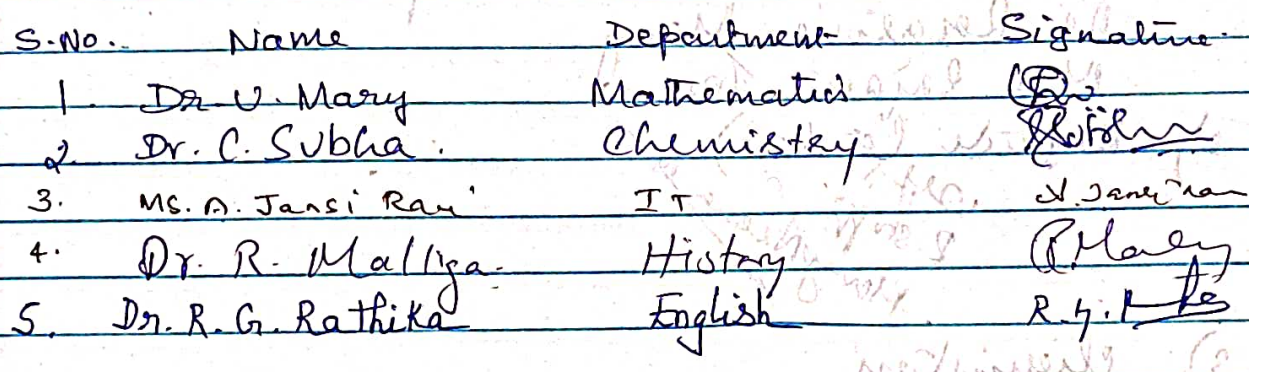 S.No. Name Department Signature
1. Dr V. Mary Mathematics
2. Dr. C. Subha. Chemistry
3. Ms. A. Jansi Rani IT A. Jansi Rani
4. Dr. R. Malliga. History
5. Dr. R. G. Rathika English R. G.